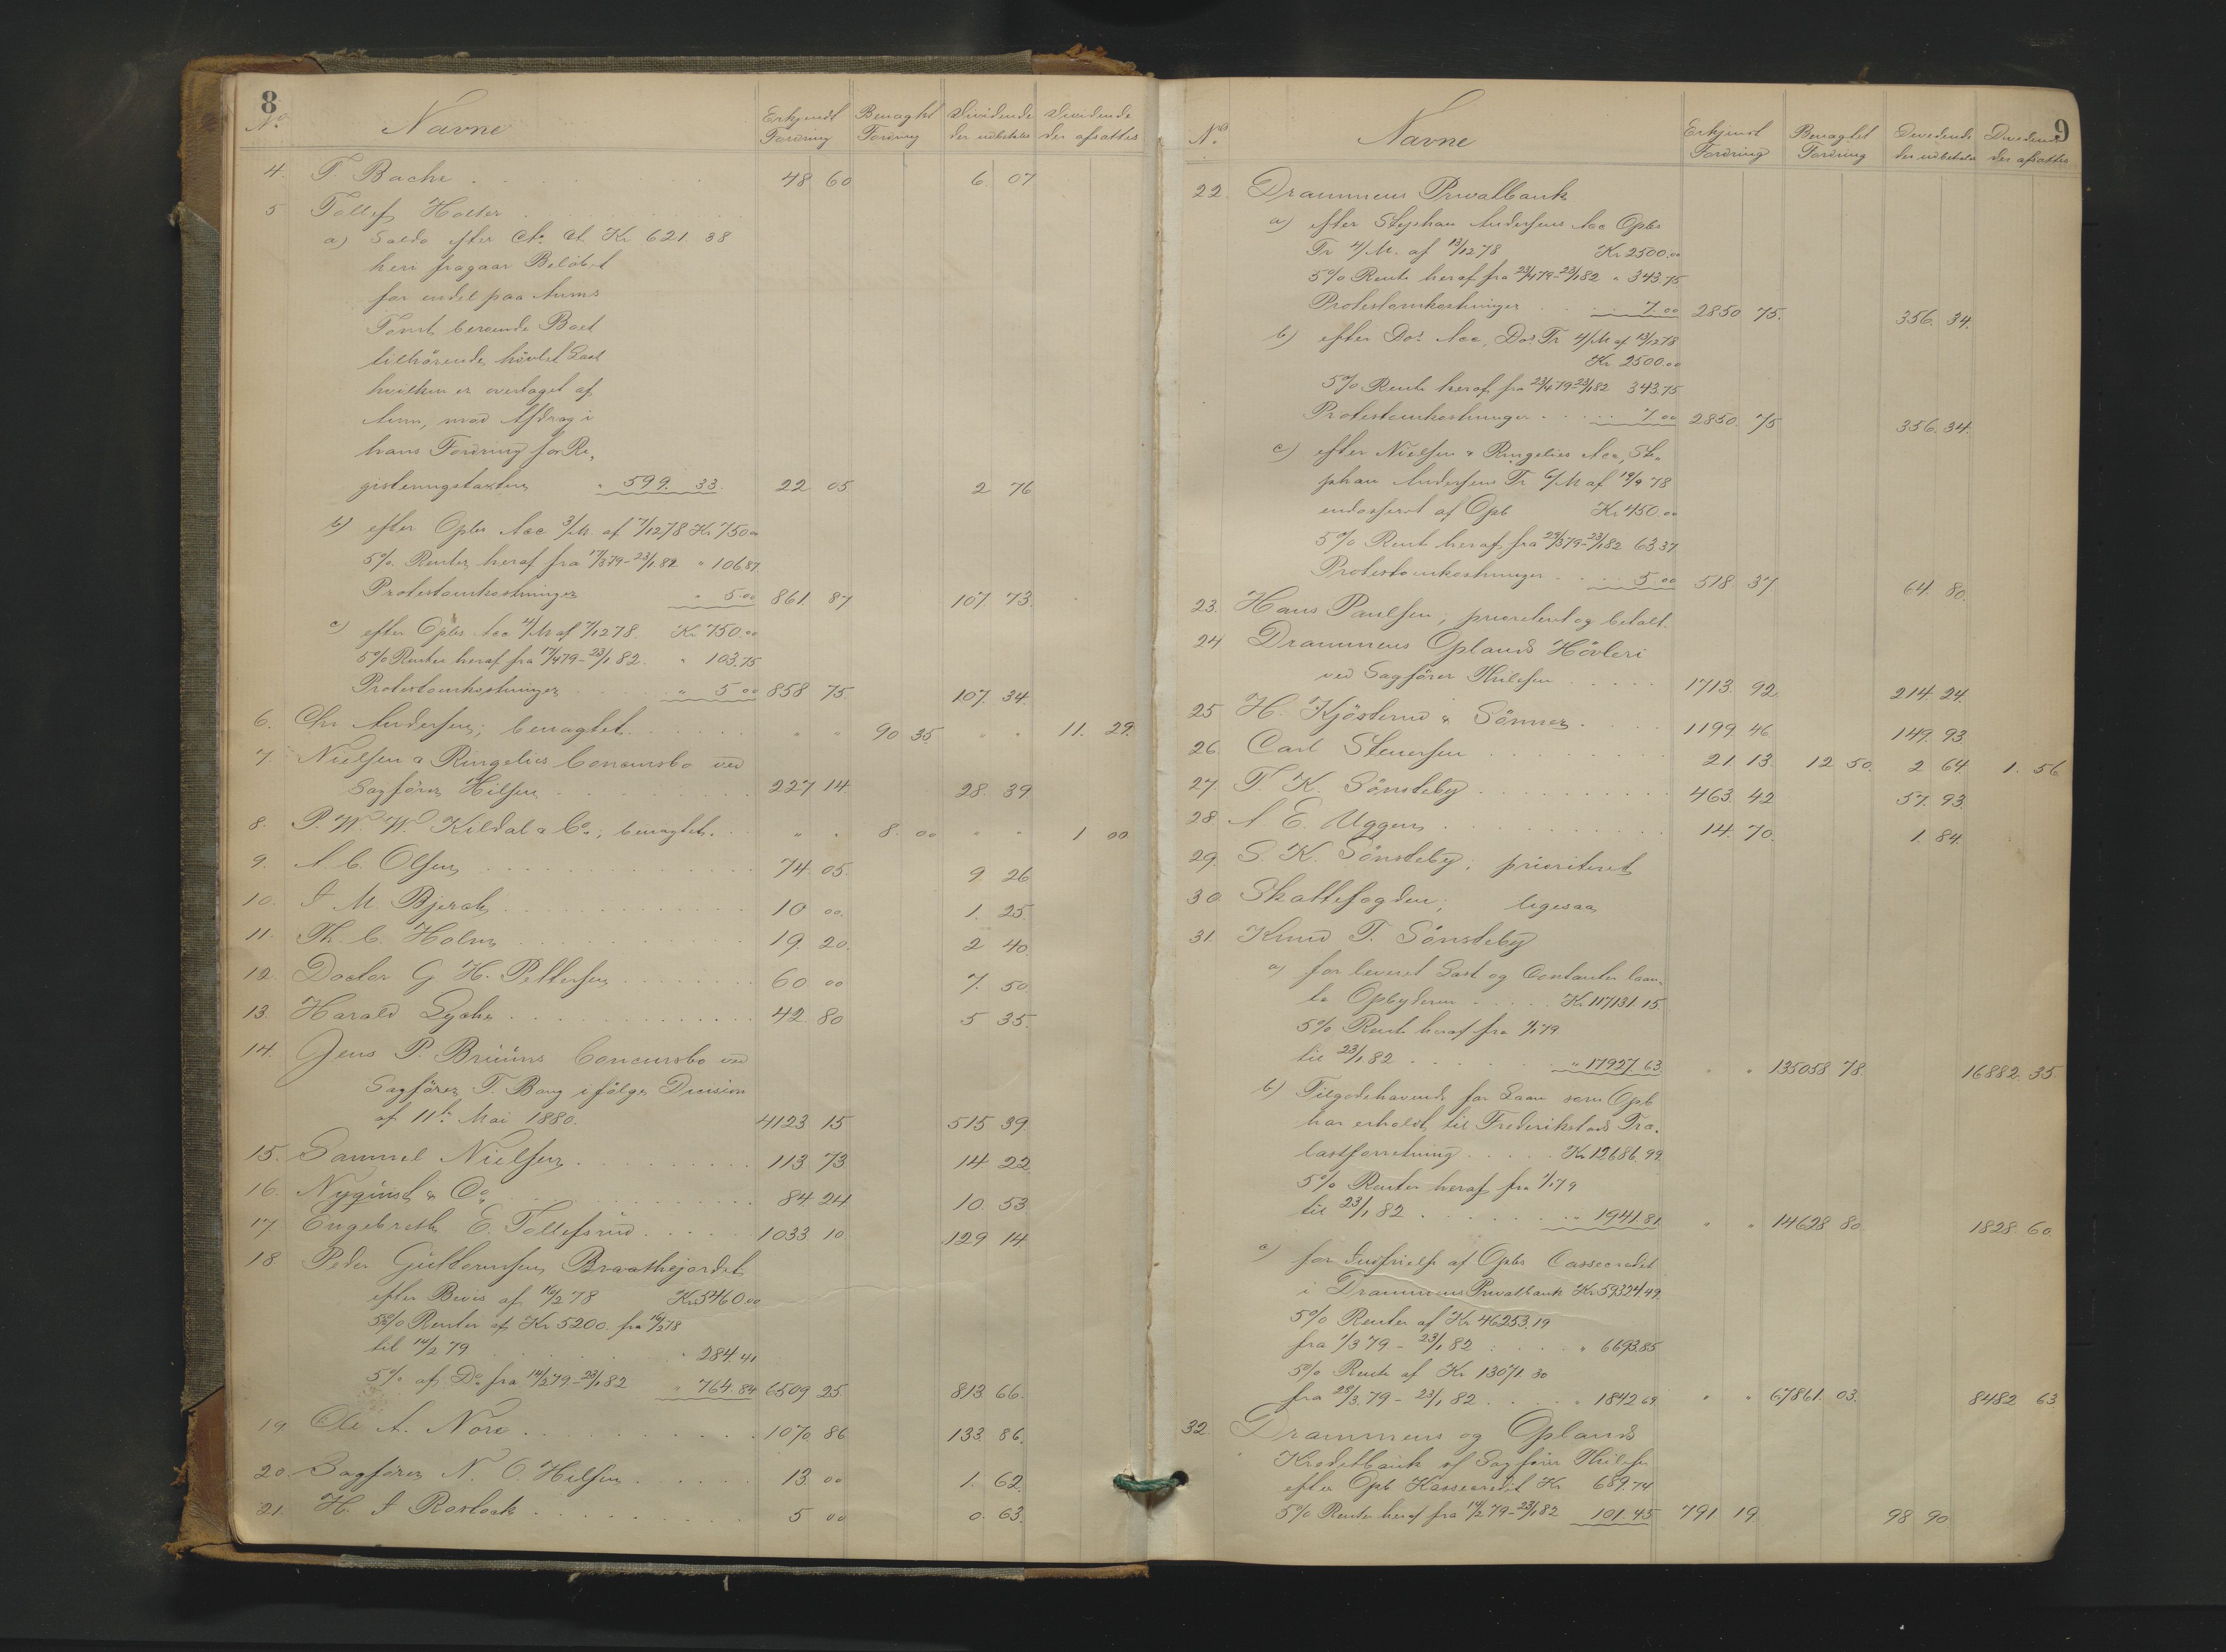 8
No Navne Erkjendt Fordring Benægtet Fordring Dividende der udbetales Dividende der afsættes
4. T. Bache 48 60 6. 07
5 Tollef Holter
a) Saldo efter Ct. Ct. Kr 621. 38
heri fragaar Beløbet
for endel paa Aums
Tomt beroende Boet
tilhørende høvlet Last
hvilken er overtaget af
Aum, mod Afdrag i
hans Fordring for Re„
gistreringstaxten „ 599. 33. 22 05 2 76
b) efter Opbs Acc 3/M. af 7/12 78 Kr 750 00
5% Renter heraf fra 17/3 79 - 23/1 82 „ 106 87
Protestomkostninger „ 5 00 861. 87 107. 73.
c) efter Opbs Acc 4/M af 7/12 78. Kr 750.00
5% Renter heraf fra 17/4 79 - 23/1 82. „ 103.75
Protestomkostninger „ 5 00 858 75 107. 34.
6. Chr Andersen; benægtet „ „ 90 35 „ „ 11. 29.
7 Nielsen & Ringelies Concursbo ved
Sagfører Hilsen 227 14 28. 39
8. P. W. W. Kildal & Co.; benægtet. „ „ 8. 00 „ „ 1 00
9. A. C. Olsen 74. 05 9 26
10. J M. Bjerck 10 00. 1. 25.
11. Th. C. Holm 19. 20. 2 40
12. Doctor G H. Pettersen 60 00 7. 50
13. Harald Lyche 42. 80 5 35.
14. Jens P. Brüüns Concursbo ved
Sagfører T. Bang ifølge Decision
af 11te Mai 1880. 4123 15 515 39
15. Samuel Nielsen 113 73 14 22
16. Nyquist & Co. 84 24 10. 53
17 Engebreth E. Tollefsrud 1033 10 129 14
18 Peder Guttormsen Braathejordet
efter Bevis af 16/2 78 Kr 5460.00
5½% Renter af Kr 5200. fra 16/2 78
til 14/2 79 „ 284.41
5% af Do. fra 14/2 79 - 23/1 82 „ 764.84 6509 25. 813 66.
19. Ole A. Nore 1070 86 133. 86.
20. Sagfører N. O. Hilsen 13. 00 1. 62
21. H. J Rostock 5 00 0. 63.
9
No. Navne Erkjendt Fordring Benægtet Fordring Dividende der udbetales Dividende der afsættes
22. Drammens Privatbank
a) efter Stephan Andersens Acc Opbs
Tr 4/M. af 13/12 78 Kr 2500.00
5% Rente heraf fra 23/4 79 - 23/1 82 „ 343.75
Protestomkostninger 7.00 2850 75. 356. 34.
b) efter Do's Acc, Do's Tr 4/M af 13/12 78
Kr 2500.00
5% Rente heraf fra 23/4 79 - 23/1 82 343.75
Protestomkostninger 7.00 2850. 75 356. 34.
c) efter Nielsen & Ringelies Acc, Ste„
phan Andersens Tr 6/M af 19/9 78
endosseret af Opb Kr 450.00
5% Rente heraf fra 29/3 79 - 23/1 82 63 37
Protestomkostninger 5.00 518. 37 64. 80.
23. Hans Paulsen; prioriteret og betalt.
24 Drammens Oplands Høvleri
ved Sagfører Thilesen 1713. 92. 214. 24.
25 H. Kjøsterud & Sønner 1199. 46 149. 93
26. Carl Stenersen 21 13. 12 50. 2 64 1. 56
27. T. K. Sønsteby 463. 42 57. 93
28. A E. Uggen 14. 70. 1. 84.
29. S. K. Sønsteby; prioriteret
30. Skattefogden; ligesaa
31. Knud T. Sønsteby
a) for leveret Last og Contanter laan„
te Opbyderen Kr 117131. 15.
5% Rente heraf fra 1/1 79
til 23/1 82 „ 17927. 63. „ „ 135058 78. 16882 35.
b) Tilgodehavende for Laan som Opb
har erholdt til Frederikstads Træ„
lastforretning Kr 12686. 99.
5% Renter heraf fra 1/1 79
til 23/1 82 „ 1941.81 „ „ 14628 80 1828. 60.
c) for Indfrielse af Opbs Cassecredit
i Drammens Privatbank Kr 59324.49.
5% Renter af Kr 46253.19
fra 1/3 79 - 23/1 82 „ 6693.85
5% Rente af Kr 13071. 30
fra 28/3 79 - 23/1 82 „ 1842 69 „ „ 67861. 03. 8482 63
32. Drammens og Oplands
Kreditbank v/ Sagfører Thilesen
efter Opb Kassecredit Kr 689.74
5% Renter heraf fra 14/2 79 - 23/1 82 101.45 791 19 98 90